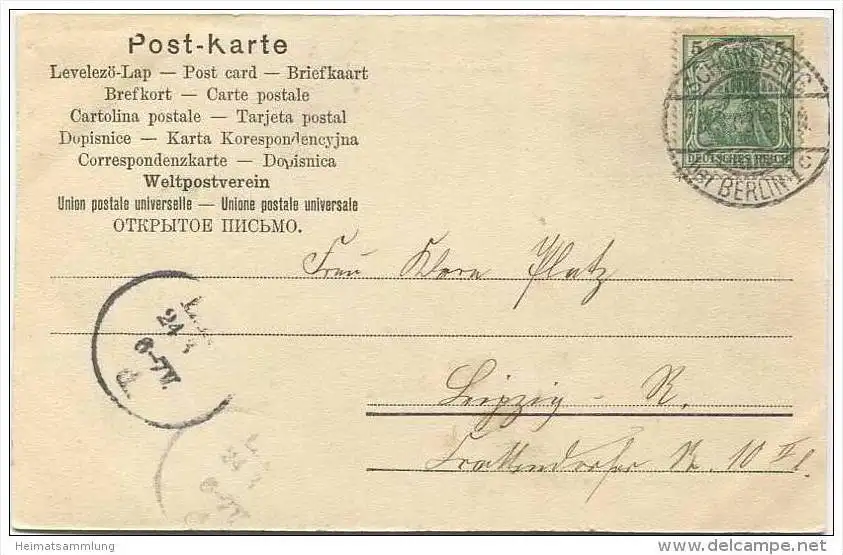 Post-Karte
Levelező-Lap — Post card — Briefkaart
Brefkort — Carte postale
Cartolina postale — Tarjeta postal
Dopisnice — Karta Korespondencyjna
Correspondenzkarte — Dopisnica
Weltpostverein
Union postale universelle — Unione postale universale
ОТКРЫТОЕ ПИСЬМО.
5
DEUTSCHES REICH
SCHÖNEBERG
BERLIN
Frau Klara Platz
24
6-7V.
Leipzig - R.
24
6-7V
Nr. 10 II l.
Heimatsammlung
www.delcampe.net